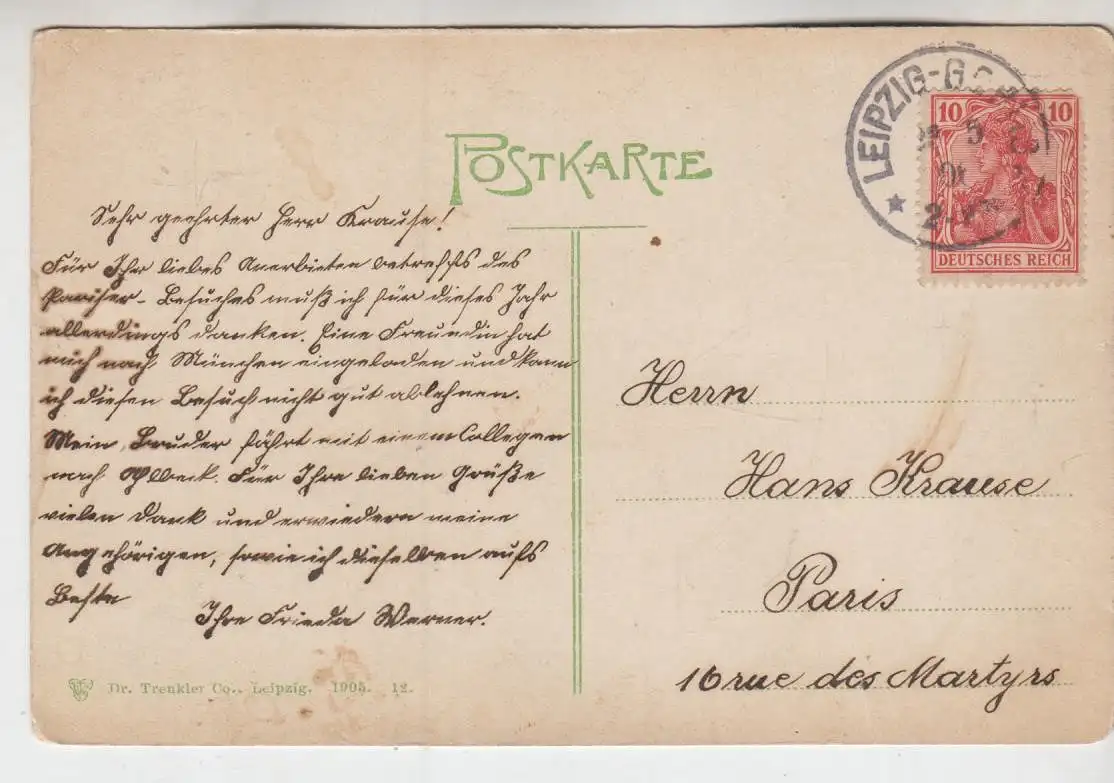 POSTKARTE
Sehr geehrter Herr Krause!
Für Ihr liebes Anerbieten betreffs des
Pariser-Besuches muß ich für dieses Jahr
allerdings danken. Eine Freundin hat
mich nach München eingeladen und kann
ich diesen Besuch nicht gut ablehnen.
Mein Bruder fährt mit einem Collegen
nach Ahlbeck. Für Ihre lieben Grüße
vielen Dank und erwiedern meine
Angehörigen, sowie ich dieselben aufs
Beste
Ihre Frieda Werner.
Dr. Trenkler Co., Leipzig. 1905. 12.
LEIPZIG-
10 10
DEUTSCHES REICH
Herrn
Hans Krause
Paris
16 rue des Martyrs